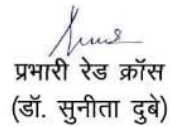 प्रभारी रेड क्रॉस
(डॉ. सुनीता दुबे)